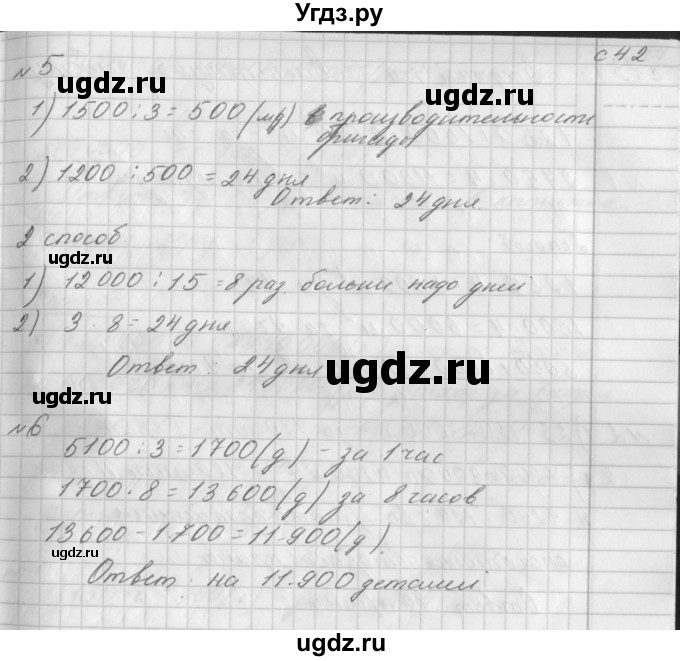 Угдз.ру
с 42
№ 5
ugdz.ru
ugdz.ru
1) 1500 : 3 = 500 (м) производительности
бригады
2) 1200 : 500 = 24 дня
Ответ: 24 дня.
2 способ
ugdz.ru
1) 12000 : 15 = 8 раз больши надо дней
2) 3 · 8 = 24 дня
Ответ: 24 дня
ugdz.ru
ugdz.ru
№6
5100 : 3 = 1700 (д) - за 1 час
1700 · 8 = 13 600 (д) за 8 часов
13 600 - 1.700 = 11.900 (д).
ugdz.ru
ugdz.ru
Ответ на 11.900 деталей
ugdz.ru